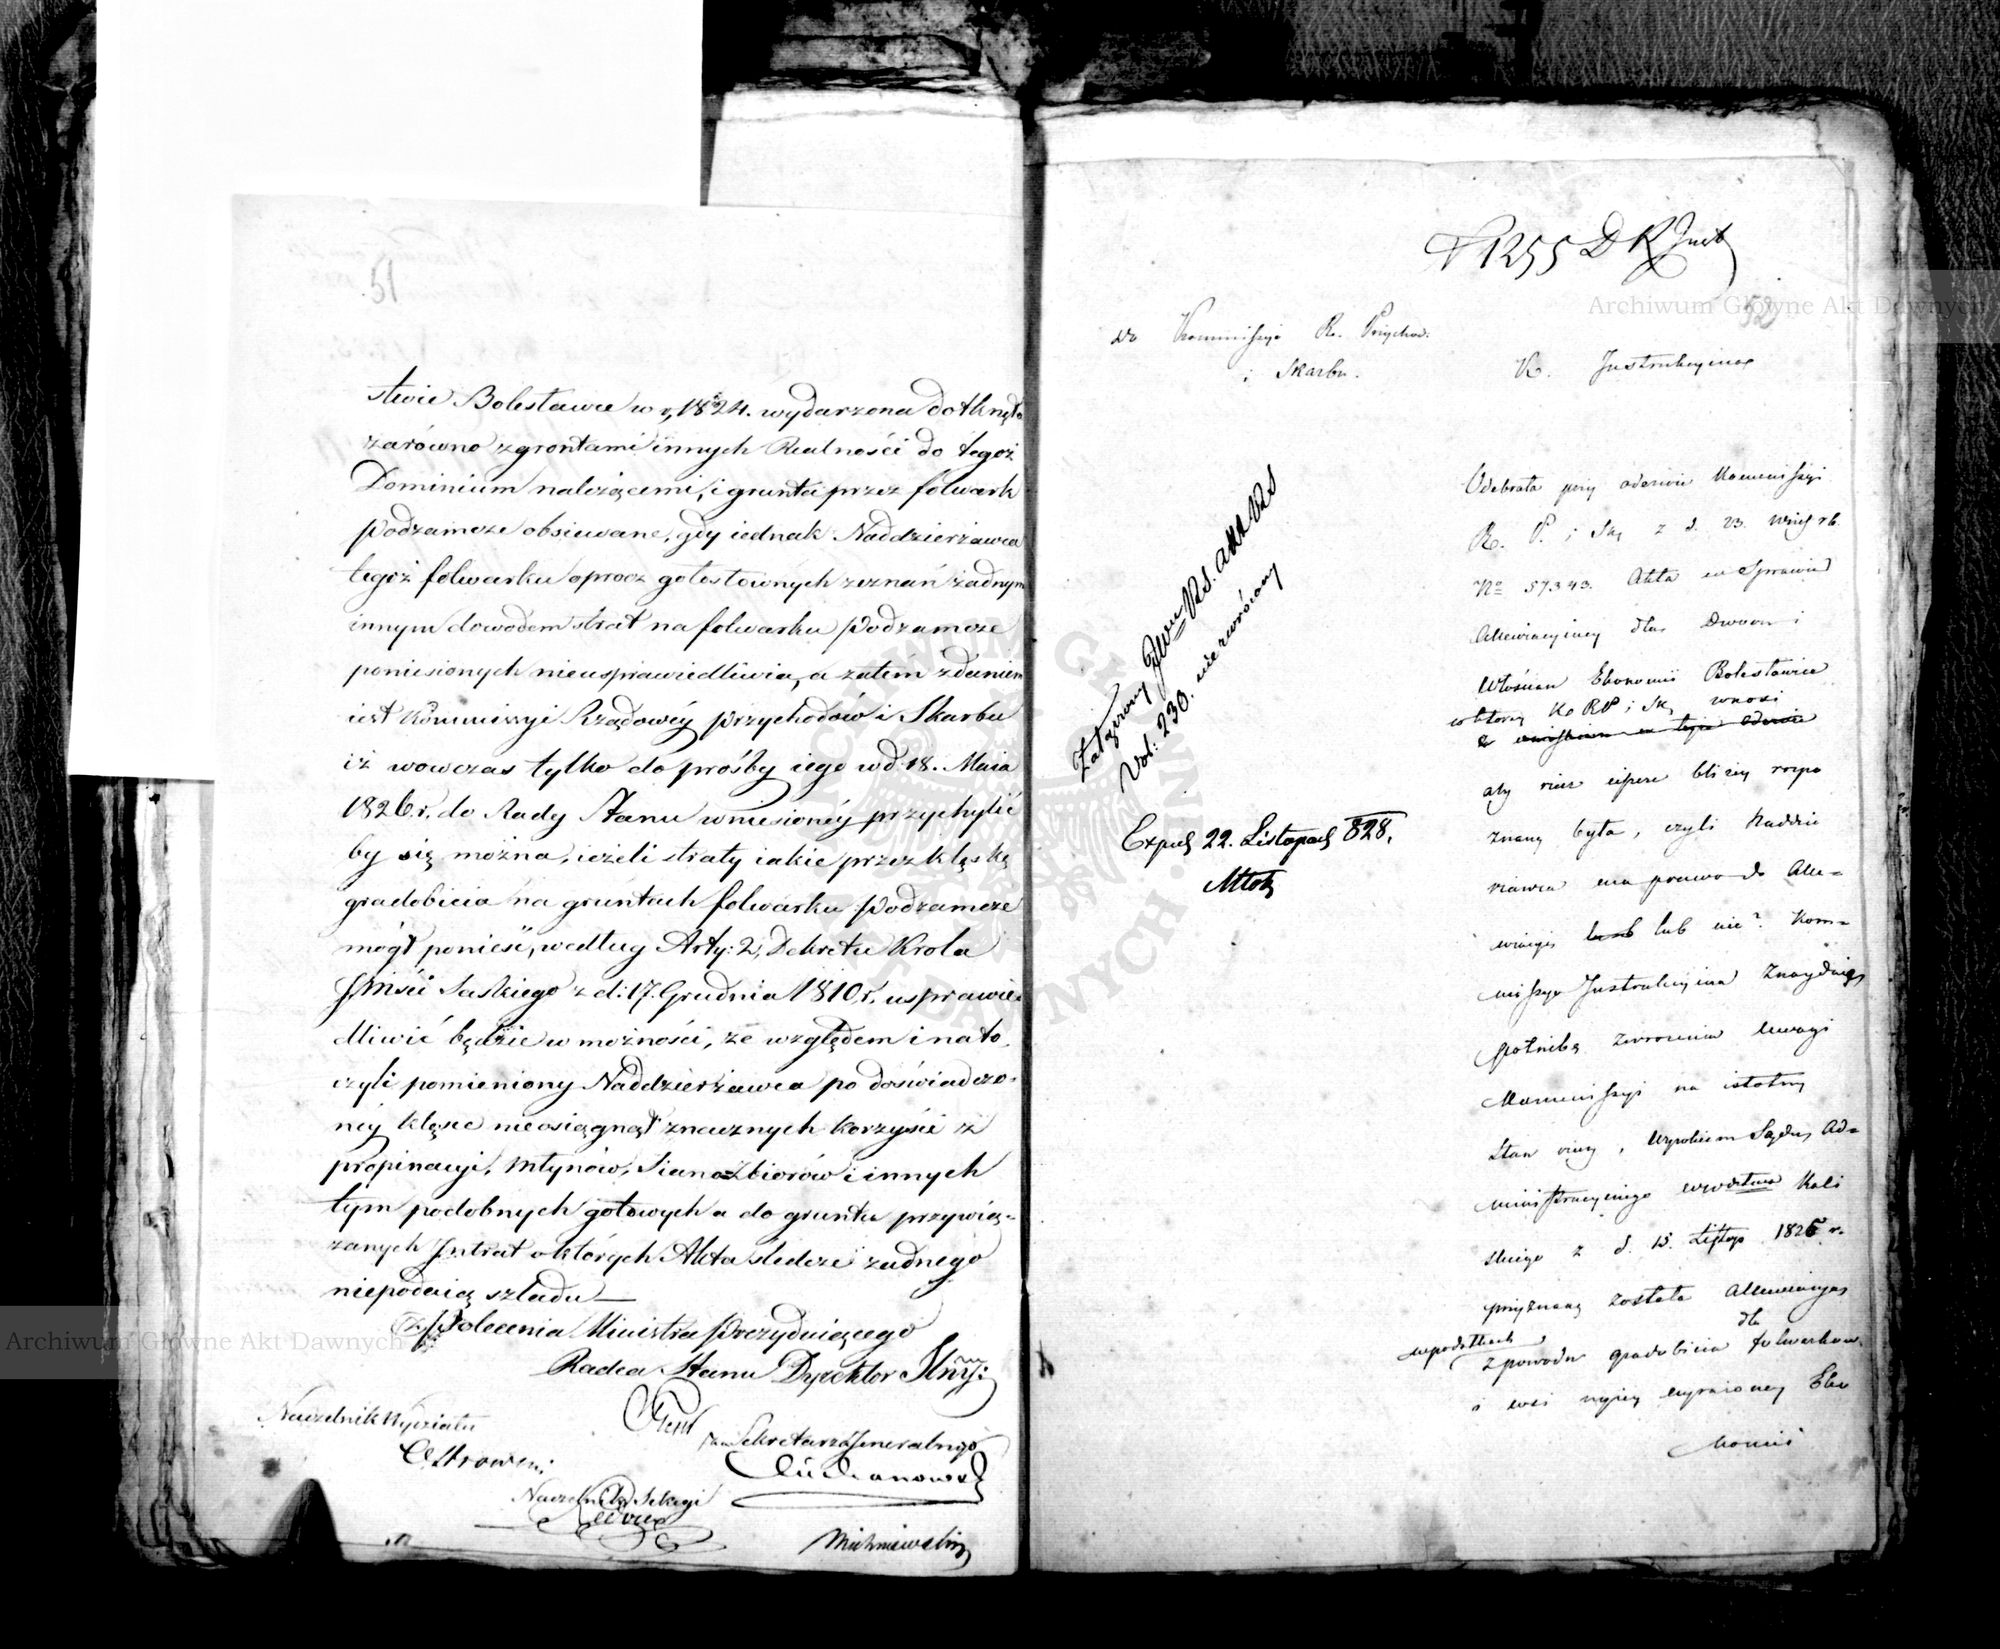 51.
stwie Bolesławce w r. 1824. wydarzona dotknęła
zarówno z grontami innych Realności do tegoż
Dominium należącemi, i grunta przez folwark
Podzamcze obsiewane, gdy iednak Naddzierzawca
tegoż folwarku oprocz gołosłownych zeznań żadnym
innym dowodem strat na folwarku Podzamcze
poniesionych nieusprawiedliwia, a zatem zdaniem
iest Kommissyi Rządowéy Przychodów i Skarbu
iż wowczas tylko do prośby iego w d. 18. Maia
1826 r. do Rady Stanu wniesionéy przychylić
by się można, ieżeli straty iakie przez klęskę
gradobicia na gruntach folwarku Podzamcze
mógł ponieść, według Arty: 2, Dekretu Krola
Jmści Saskiego z d: 17. Grudnia 1810 r. usprawie-
dliwić będzie w możności, ze względem i na to,
czyli pomieniony Naddzierżawca po doświadczo-
néy klęsce nieosiągnął znacznych korzyści z
propinacyi, Młynów, Sianozbiorów i innych
tym podobnych gotowych a do gruntu przywią-
zanych Intrat o których Akta śledcze żadnego
niepodaią szladu
Z Polecenia Ministra Prezyduiącego
Radca Stanu Dyrektor Jlny:
Naczelnik Wydziału
Sekretarza Jeneralnego
Naczelnik Sekcyi
1255 D K Inst
52
Do Kommissyi R. Przychod:
i Skarbu.
K. Instrukcyina
Odebrała przy odezwie Kommissyi
R. P. i Sk. z d. 23. Wrześ rb.
No 57393. Akta w Sprawie
Allewiacyiney dla Dworu i
Włościan Ekonomii Bolesławice
w ktorey K R P i Sk. wnosi
aby rzecz ieszcze bliżey rozpo
znaną była, czyli Naddzie
rżawca ma prawo do Alle-
wiacyi lub nie? Kom-
missya Instrukcyina znayduie
potrzebę zwrocenia uwagi
Kommissyi na istotny
Stan rzeczy, Wyrokiem Sądu Ad-
ministracyinego Wojewdztwa Kali
skiego z d. 15. Listop 1826 r.
przyznaną została Allewiacya
w podatkach
z powodu gradobicia dla folwarkow
i wsi wyżey wyrażoney Eko
nomii
Załączony
Vol: 230. nie zwrócony
Exped 22. Listopad 828.